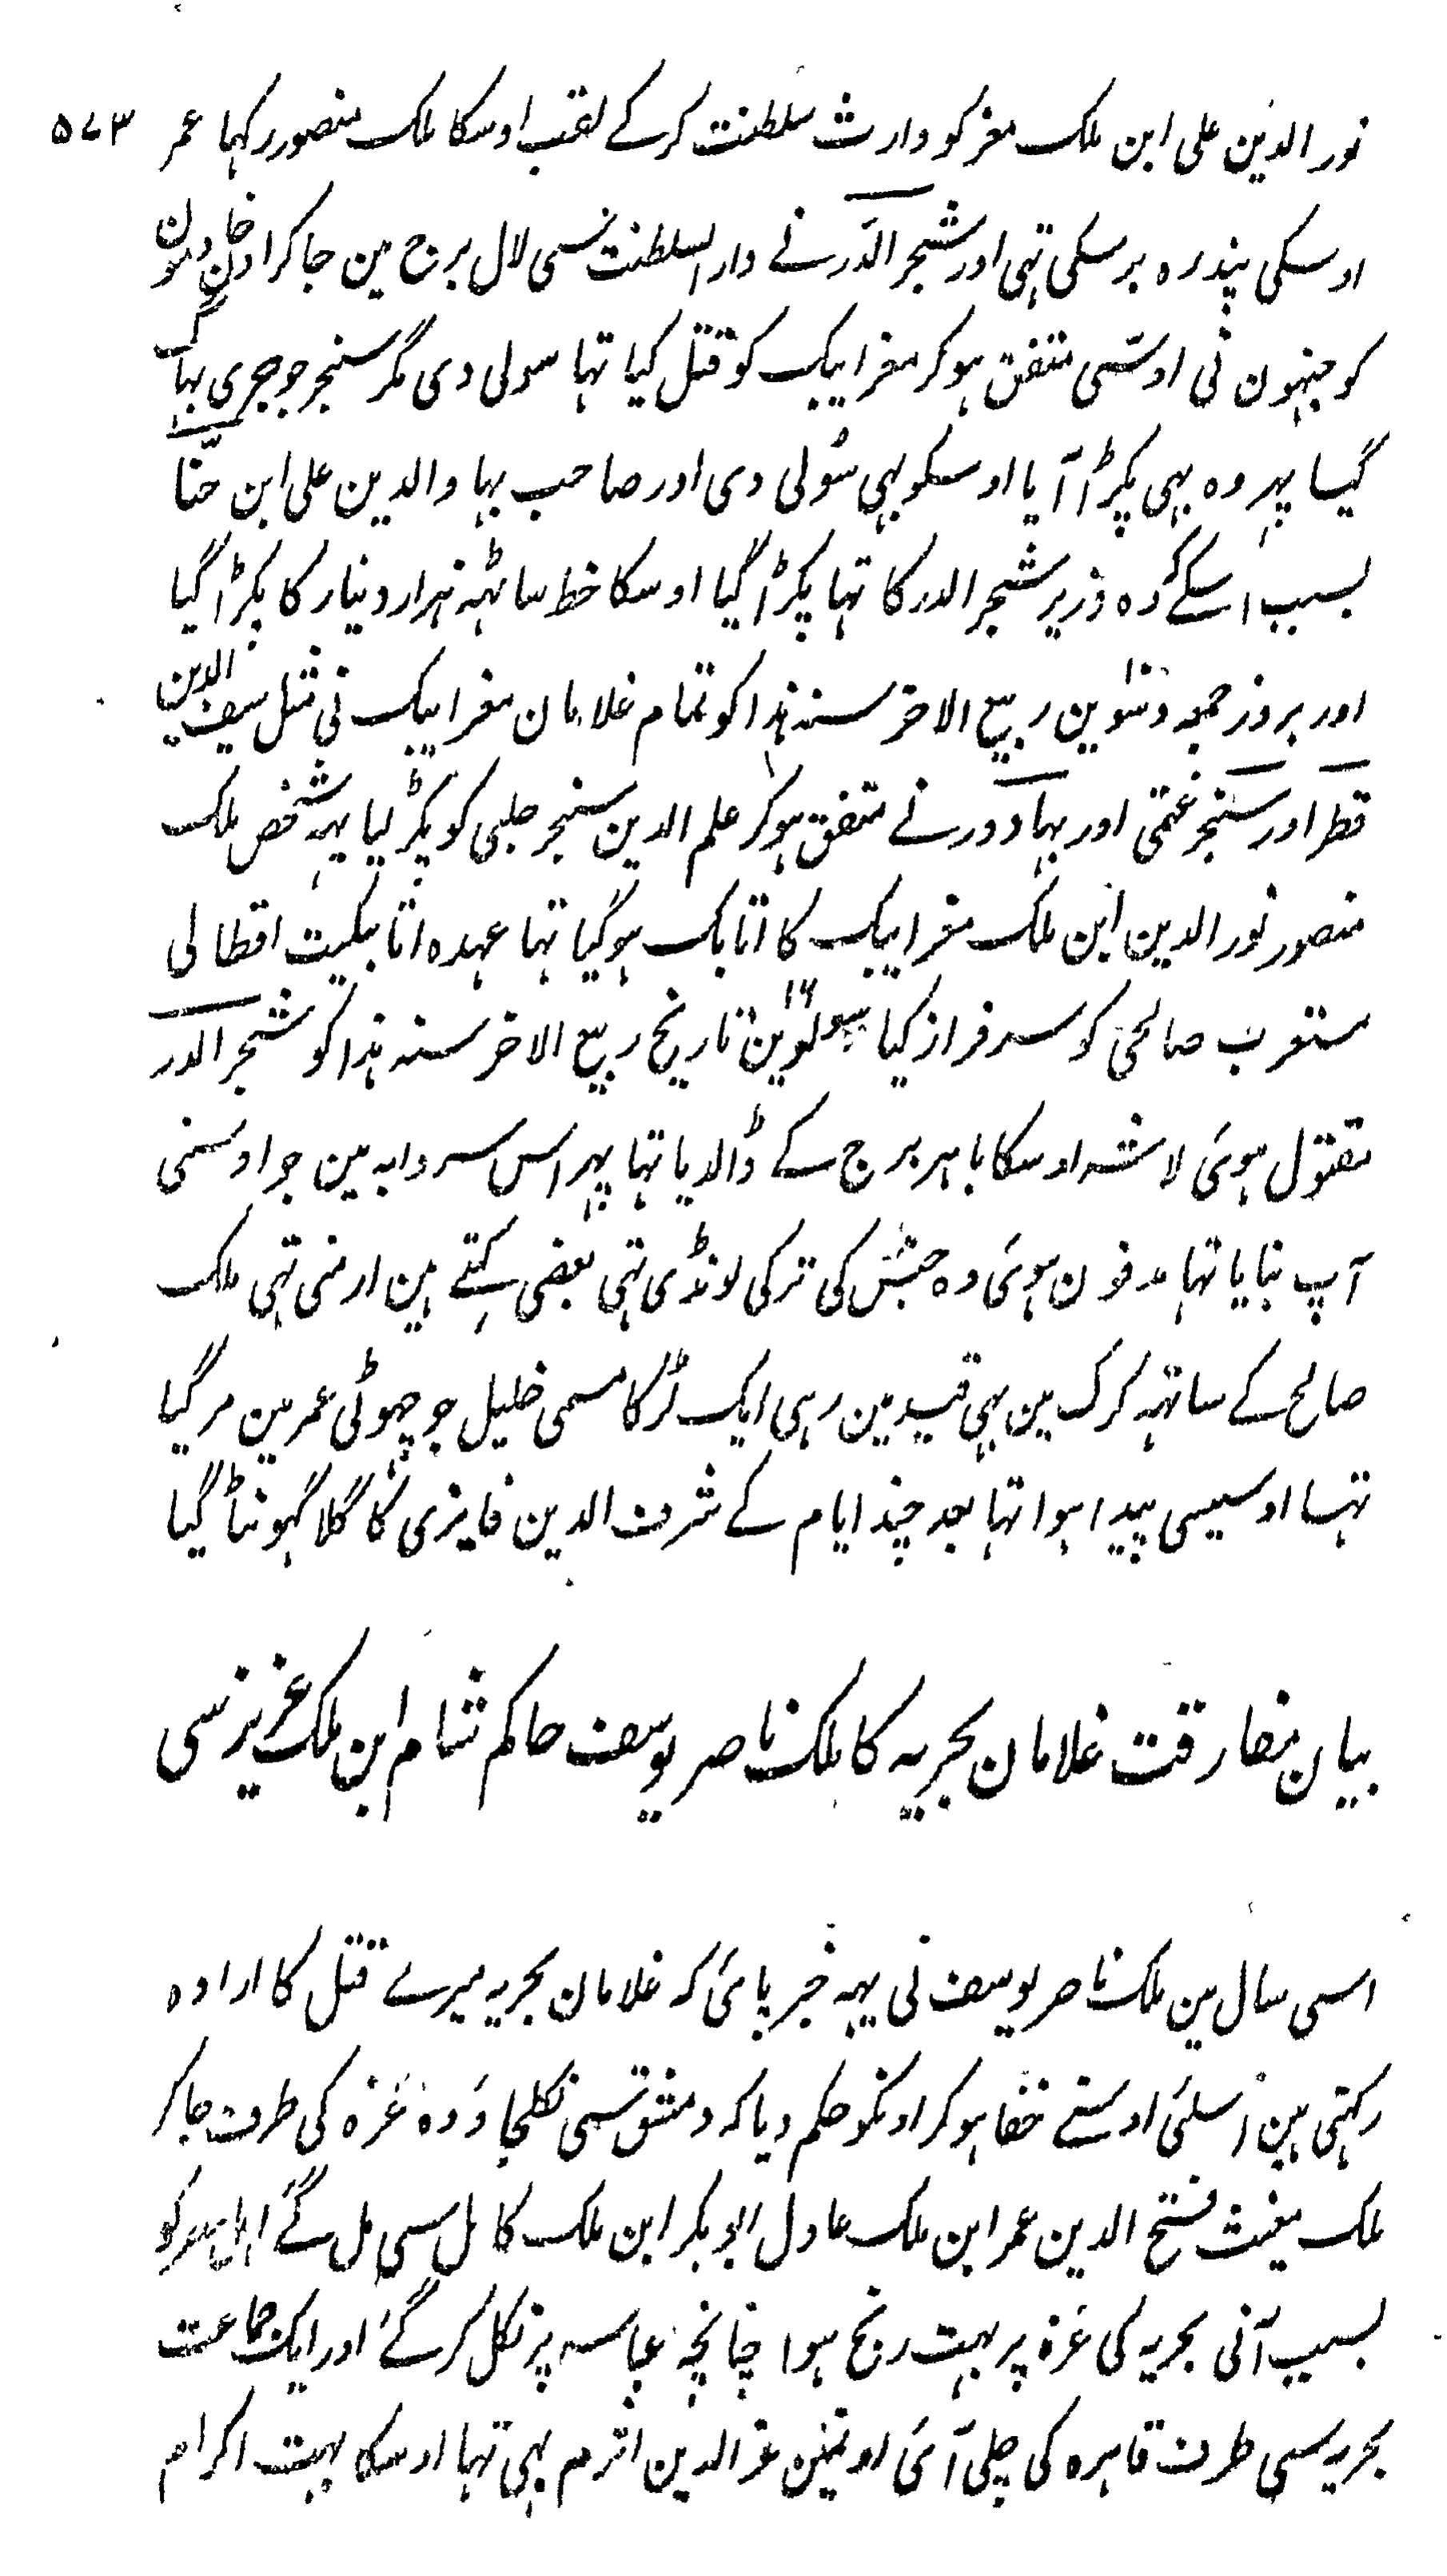 نور الدین علی ابن ملک معز کو وارث سلطنت کرکے لقب اوسکا ملک منصور رکہا عمر ۵۷۳
اوسکی پندرہ برسکی تہی اور شجر الدر نے دار السلطنت سی لال برج مین جا کر اون خادمون
کو جنہون نی اوسی متفق ہو کر معز ایبک کو قتل کیا تہا سولی دی مگر سنجر جوجری بہاگ
گیا پہر وہ بہی پکڑا آیا اوسکو بہی سُولی دی اور صاحب بہاو الدین علی ابن حنّا
بسبب اسکے کہ وہ وزیر شجر الدر کا تہا پکڑا گیا اوسکا خط ساٹہہ ہزار دینار کا پکڑا گیا
اور بروز جمعہ دسوین ۱۰ ربیع الاخر سنہ ہذا کو تمام غلامان معز ایبک نی مثل سیف الدین
قطز اور سنجر غتمی اور بہادور نے متفق ہو کر علم الدین سنجر حلبی کو پکڑ لیا یہہ شخص ملک
منصور نور الدین ابن ملک معز ایبک کا اتابک ہو گیا تہا عہدہ اتابکیت اقطالی
مستعرب صالحی کو سرفراز کیا سولوین ۱۶ تاریخ ربیع الاخر سنہ ہذا کو شجر الدر
مقتول ہوئی لاشہ اوسکا باہر برج کے ڈالدیا تہا پہر اس سردابہ مین جو اوسنی
آپ بنایا تہا مدفون ہوئی وہ جنس کی ترکی لونڈی تہی بعضی کہتے ہین ارمنی تہی ملک
صالح کے ساتہہ کرک مین بہی قید مین رہی ایک لڑکا مسمی خلیل جو چہوٹی عمر مین مر گیا
تہا اوسیسی پیدا ہوا تہا بعد چند ایام کے شرف الدین فایزی کا گلا گہونٹا گیا
بیان مفارقت غلامان بحریہ کا ملک ناصر یوسف حاکم شام ابن ملک عزیز سی
اسی سال مین ملک ناصر یوسف نی یہہ خبر پائی کہ غلامان بحریہ میرے قتل کا ارادہ
رکہتی ہین اسلئی اوسنے خفا ہو کر اونکو حکم دیا کہ دمشق سی نکلجاو وہ غزہ کی طرف جا کر
ملک مغیث فتح الدین عمر ابن ملک عادل ابو بکر ابن ملک کامل سی مل گے اہل مصر کو
بسبب آنی بحریہ کی غزہ پر بہت رنج ہوا چنانچہ عباسہ پر نکل کر گے اور ایک جماعت
بحریہ سی طرف قاہرہ کی چلی آئی اونمین عز الدین اثرم بہی تہا اوسکا بہت اکرام